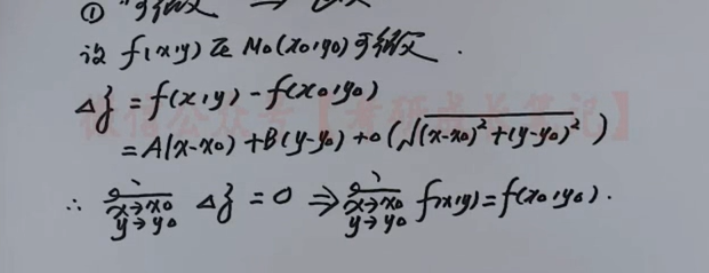 ① "可微" ⇒ "连续"
设 f(x,y) 在 M₀(x₀,y₀) 可微.
Δz = f(x,y) - f(x₀,y₀)
= A(x-x₀) + B(y-y₀) + o(√((x-x₀)²+(y-y₀)²))
∴ lim_{x→x₀, y→y₀} Δz = 0 ⇒ lim_{x→x₀, y→y₀} f(x,y) = f(x₀,y₀).